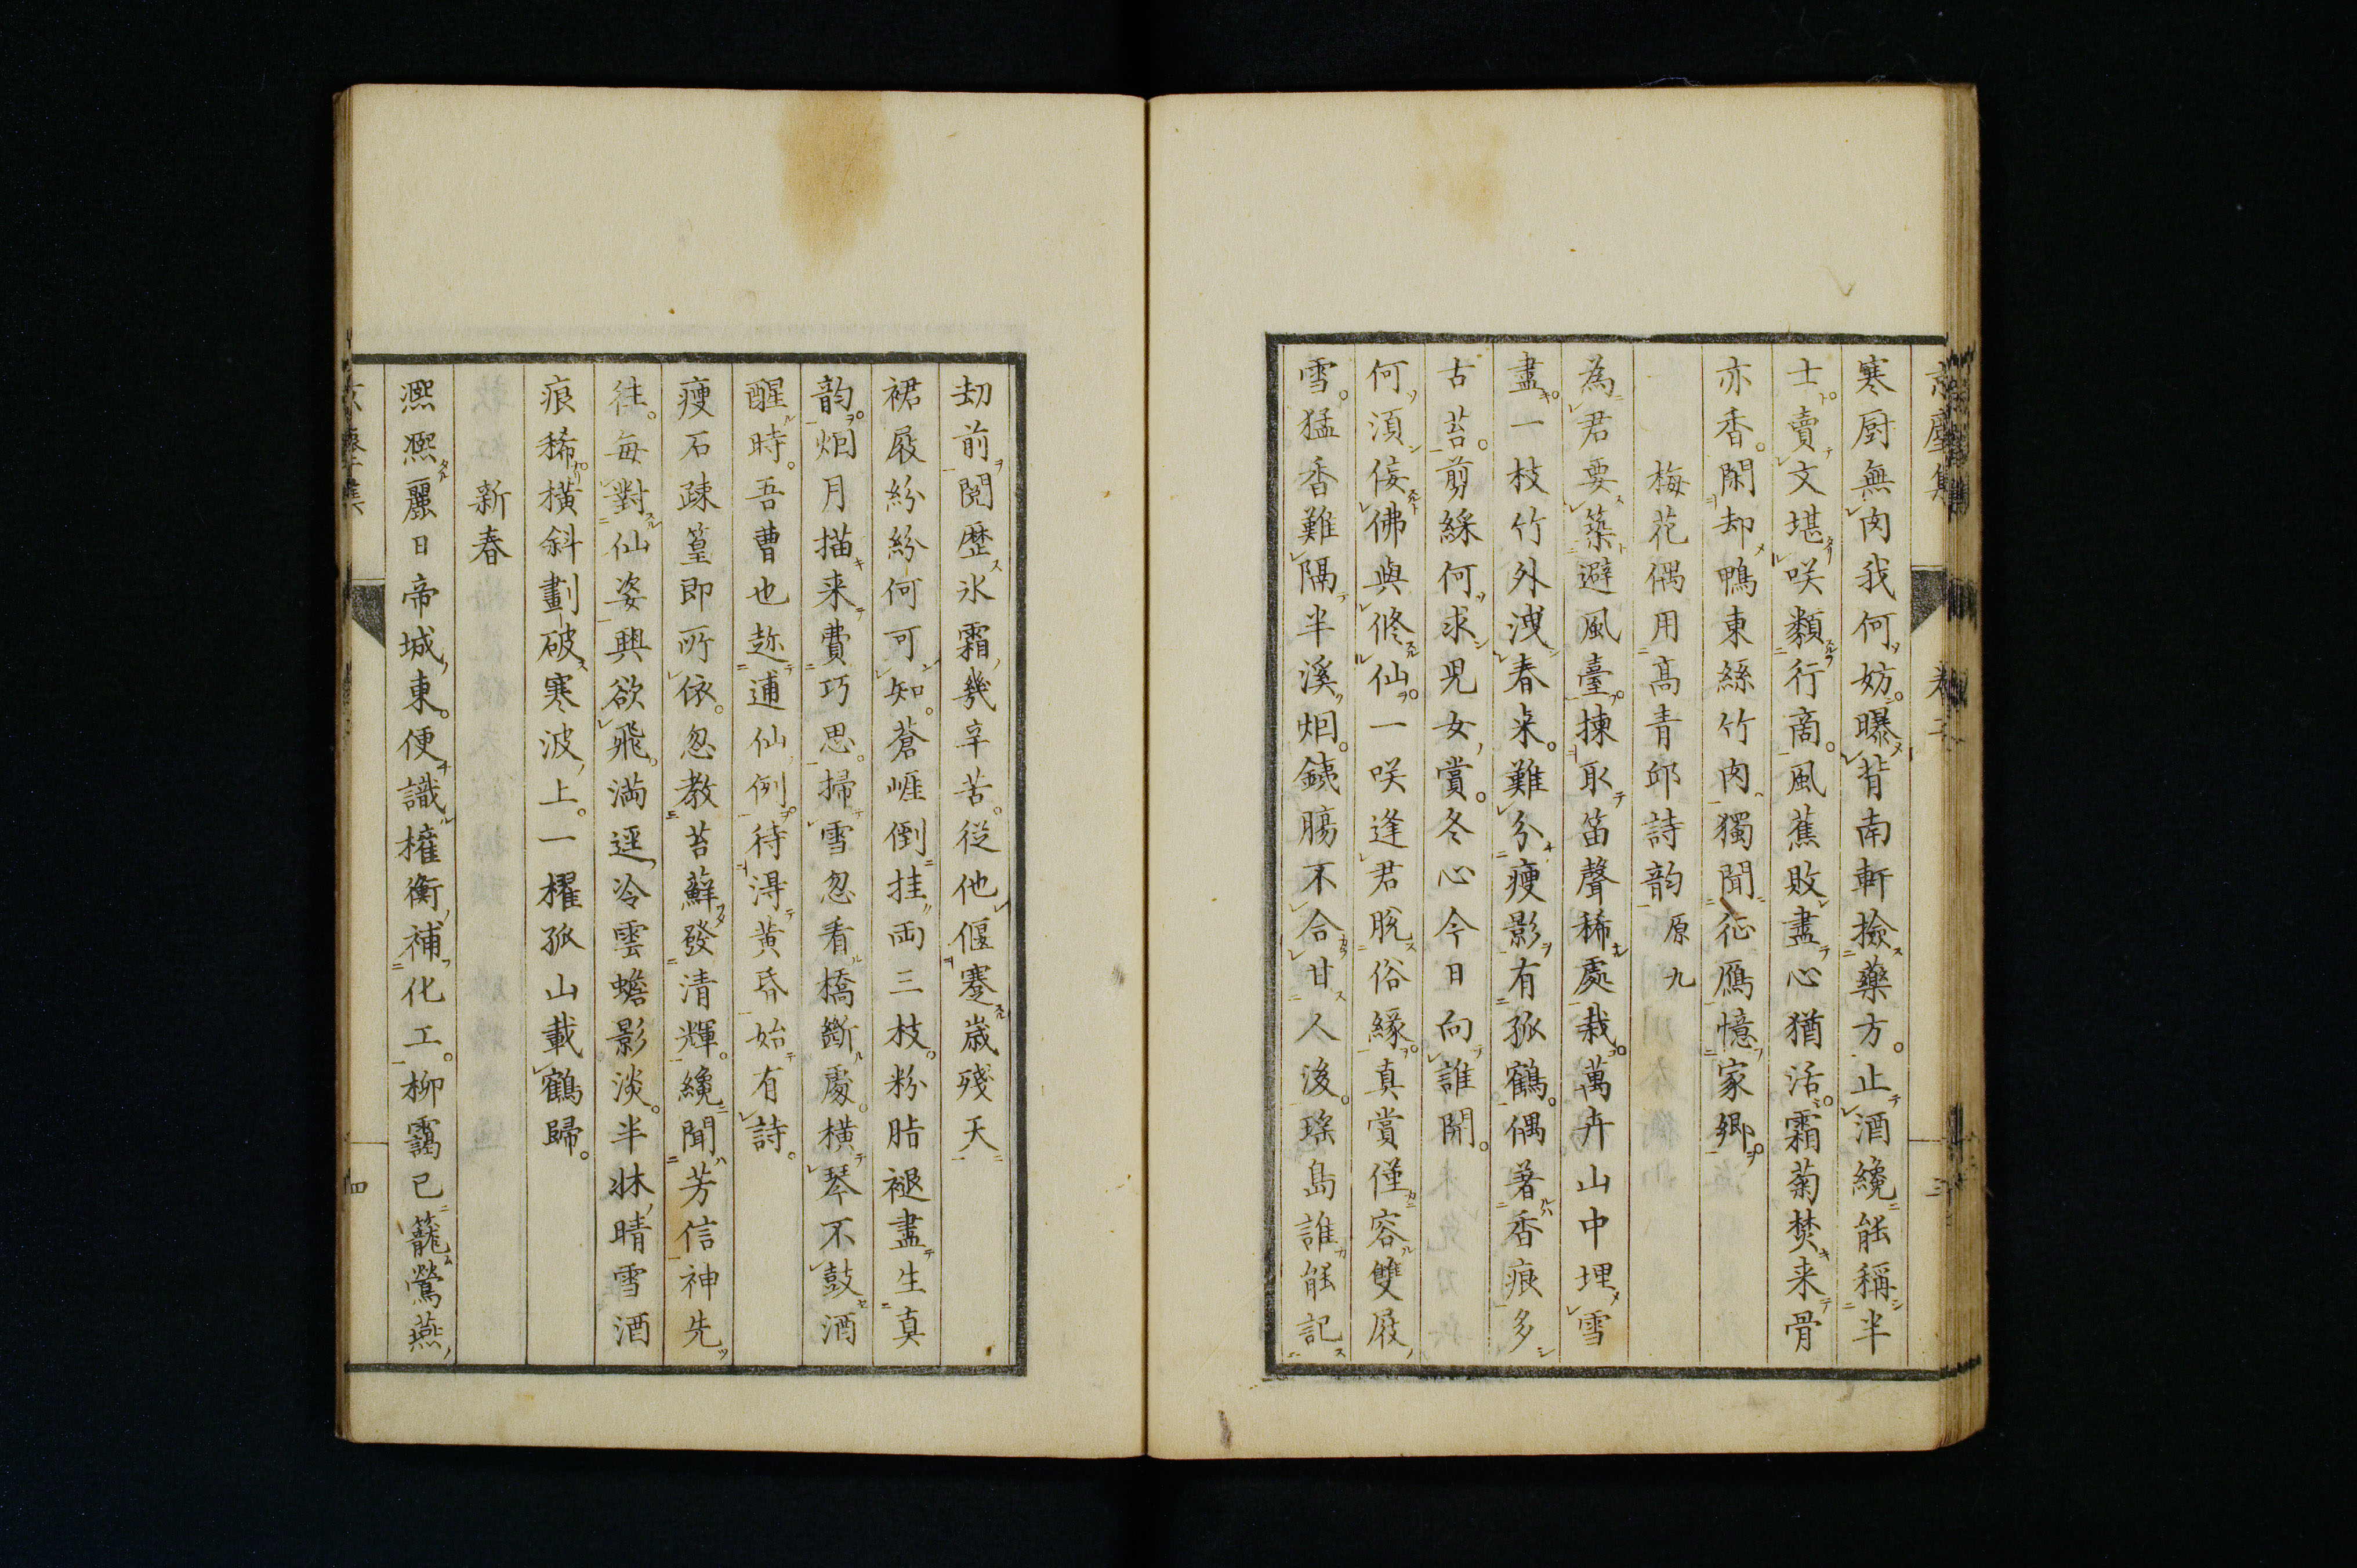 寒厨無肉我何妨曝背南軒撿藥方止酒纔能稱半
士賣文堪咲類行商風蕉敗盡心猶活霜菊焚来骨
亦香閑却鴨東絲竹肉獨聞征鴈憶家鄉
梅花偶用高青邱詩韵原九
為君要築避風臺揀取笛聲稀處栽萬卉山中埋雪
盡一枝竹外洩春来難分瘦影有孤鶴偶著香痕多
古苔剪綵何求児女賞冬心今日向誰開
何須佞佛與修仙一咲逢君脱俗緣真賞僅容雙屐
雪猛香難隔半溪烟銕腸不合甘人後瑤島誰能記
劫前閲歴氷霜幾辛苦従他偃蹇歳殘天
裙屐紛紛何可知蒼崕倒挂両三枝粉脂褪盡生真
韵烟月描来費巧思掃雪忽看橋斷處横琴不鼓酒
醒時吾曹也趂逋仙例待淂黄昏始有詩
瘦石疎篁即所依忽教苔蘚發清輝纔聞芳信神先
往毎對仙姿興欲飛満逕冷雲蟾影淡半牀晴雪酒
痕稀横斜劃破寒波上一櫂孤山載鶴歸
新春
凞凞麗日帝城東便識權衡補化工柳靄已籠鶯燕